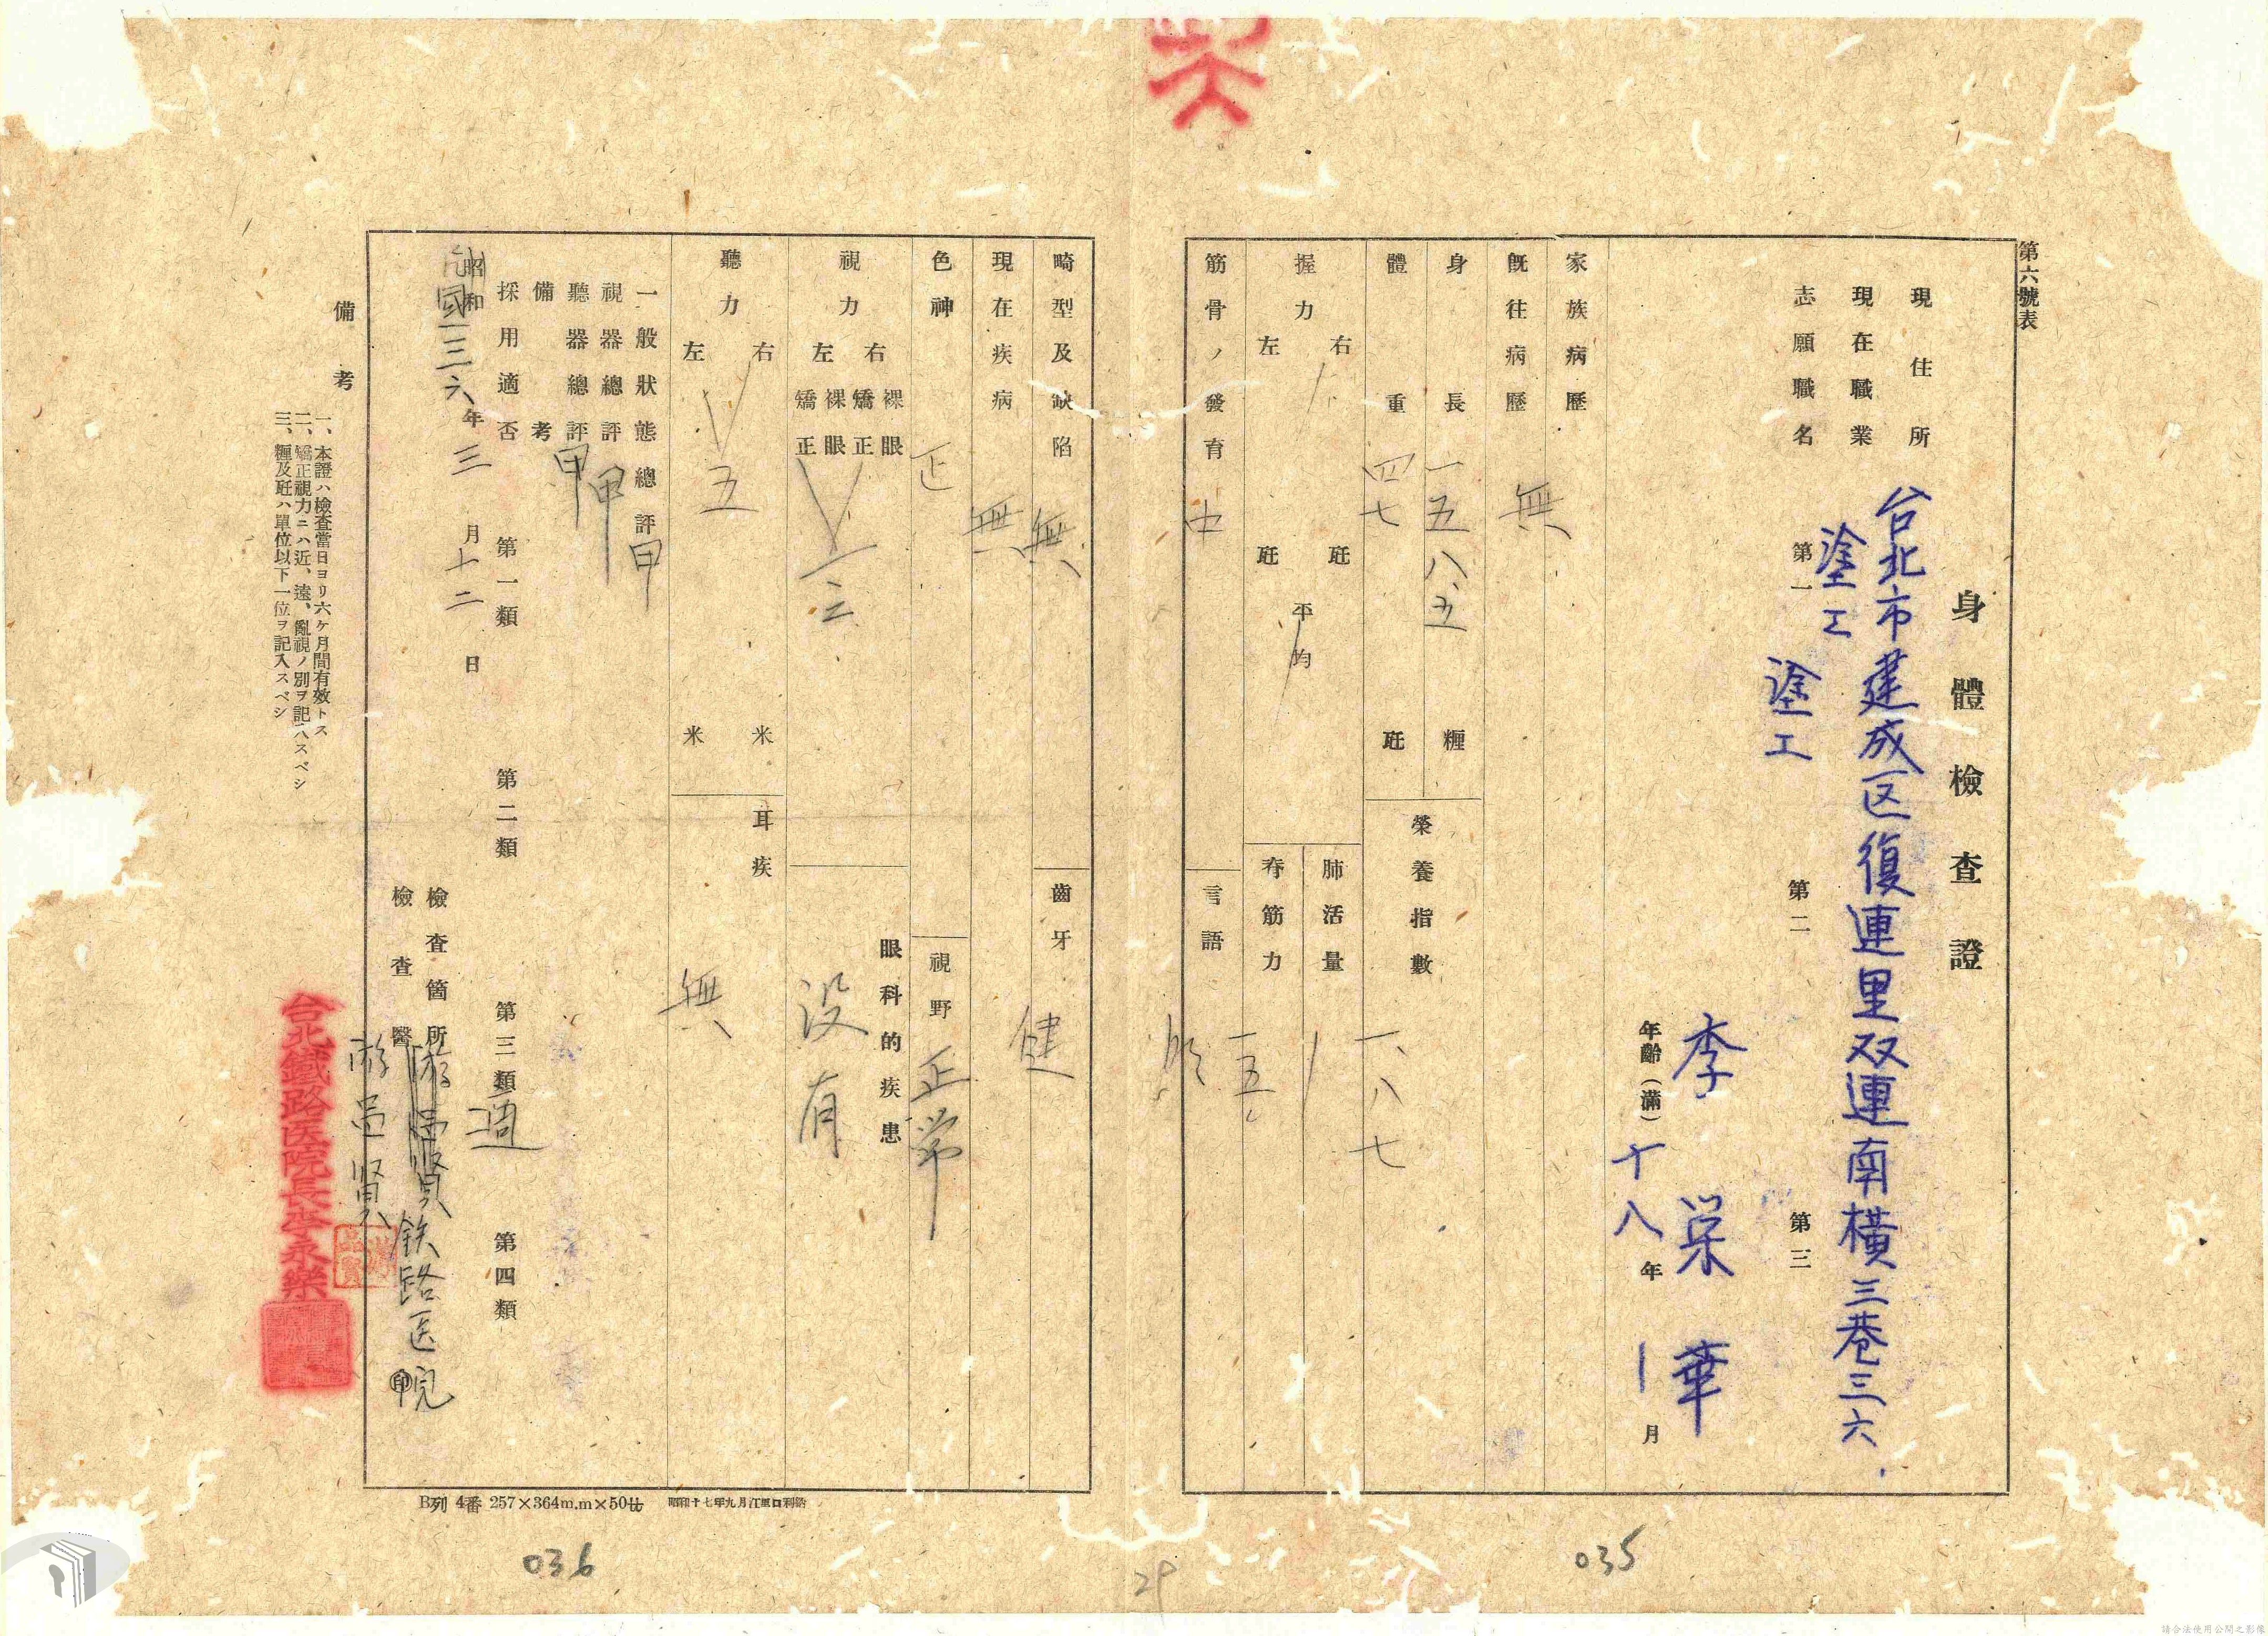 第六號表
身體檢查證
現住所 台北市建成区復連里双連南横三巷三六
現在職業 塗工
志願職名 第一 塗工 第二 第三
李 栄 華
年齡（滿）十八年 一月
家族病歷
既往病歷 無
身長 一五八.五 糎
體重 四七 瓩
榮養指數 一、八七
握力 右 瓩 左 瓩 平均
肺活量
脊筋力 一五
筋骨ノ發育 中
言語
畸型及缺陷 無
齒牙 健
現在疾病 無
色神 正
視野 正常
視力 右 裸眼 矯正 左 裸眼 矯正 一.二
眼科的疾患 没有
聽力 右 米 左 米 五
耳疾 無
一般狀態總評 甲
視器總評 甲
聽器總評 甲
備考
採用適否 第一類 第二類 第三類 適 第四類
昭和 民國三六年三月十二日
檢查箇所 鉄路医院
檢查醫 游 賢 印
台北鐵路医院長李永樂
備考
一、本證ハ檢查當日ヨリ六ケ月間有效トス
二、矯正視力ニハ近、遠、亂視ノ別ヲ記入スベシ
三、糎及瓩ハ單位以下一位ヲ記入スベシ
B列 4番 257×364m.m×50
昭和十七年九月江里口利路
036
29
035
請合法使用公開之影像